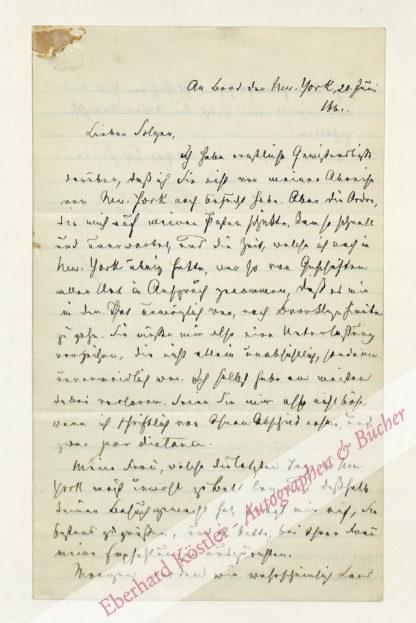 An Bord der New-York, 20. Juni
1861.
Lieber Solger,
Ich habe ernstliche Gewissensbisse
darüber, daß ich Sie nicht vor meiner Abreise
von New-York noch besucht habe. Aber die Ordre,
die mich auf meinen Posten schickte, kam so schnell
und unerwartet, und die Zeit, welche ich noch in
New-York übrig hatte, war so von Geschäften
aller Art in Anspruch genommen, daß es mir
in der That unmöglich war, nach Brooklyn
zu gehn. Sie müssen mir also eine Unterlassung
verzeihen, die nicht allein unabsichtlich, sondern
unvermeidlich war. Ich selbst habe am meisten
dabei verloren. Seien Sie mir also nicht böse,
wenn ich schriftlich von Ihnen Abschied nehme, und
zwar par distance.
Meine Frau, welche die letzten Tage in New
York noch unwohl zu Bett lag und deßhalb
keinen Besuch gemacht hat, trägt mir auf, Sie
bestens zu grüßen, und ich bitte, bei Ihrer Frau
meine Empfehlungen auszurichten.
Morgen werden wir wahrscheinlich Land
Eberhard Köstler - Autographen & Bücher